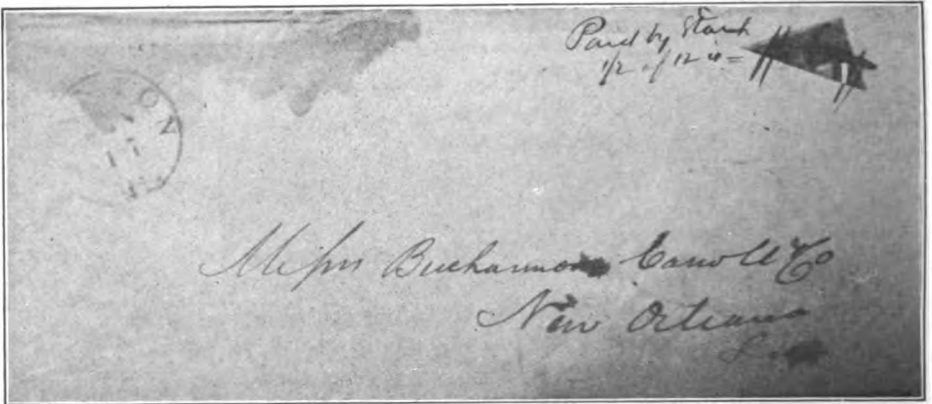 Paid by Stamp
1/2 of 12 c =
ON
17
Messrs Buchannon Carroll & Co
New Orleans